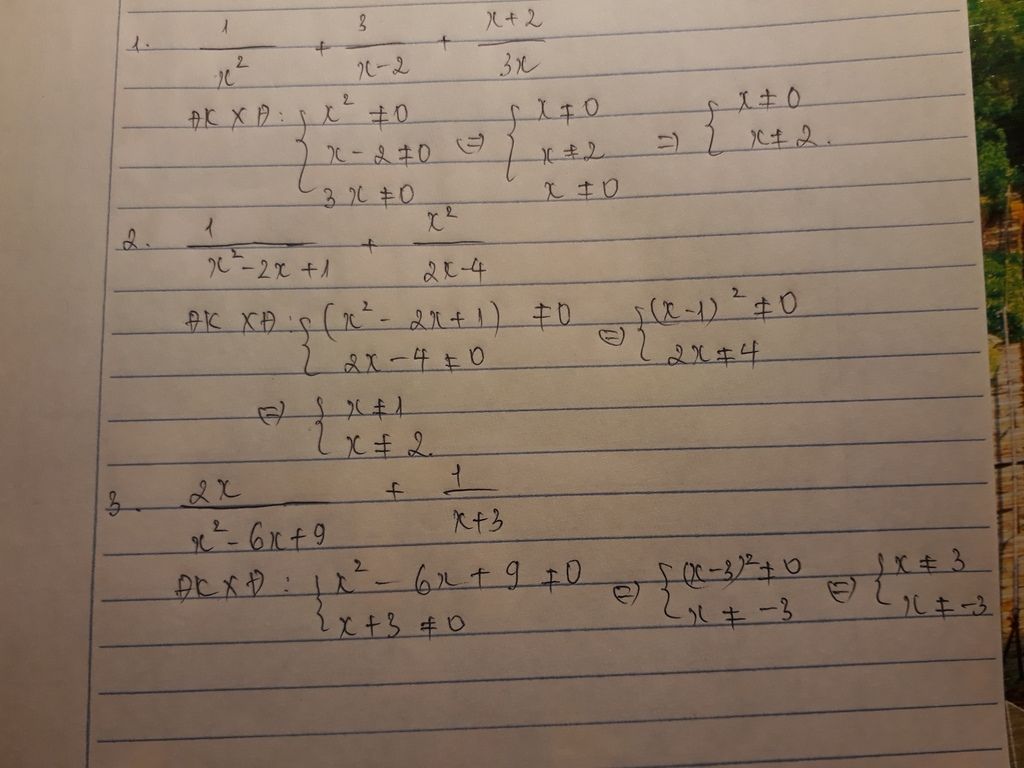 1. 1/x² + 3/x-2 + x+2/3x
ĐKXĐ: { x² ≠ 0 ⇔ { x ≠ 0 ⇒ { x ≠ 0
x - 2 ≠ 0 x ≠ 2 x ≠ 2.
3x ≠ 0 x ≠ 0
2. 1/x²-2x+1 + x²/2x-4
ĐKXĐ: { (x² - 2x+1) ≠ 0 ⇔ { (x-1)² ≠ 0
2x - 4 ≠ 0 2x ≠ 4
⇔ { x ≠ 1
x ≠ 2.
3. 2x/x²-6x+9 + 1/x+3
ĐKXĐ: { x² - 6x + 9 ≠ 0 ⇔ { (x-3)² ≠ 0 ⇔ { x ≠ 3
x+3 ≠ 0 x ≠ -3 x ≠ -3